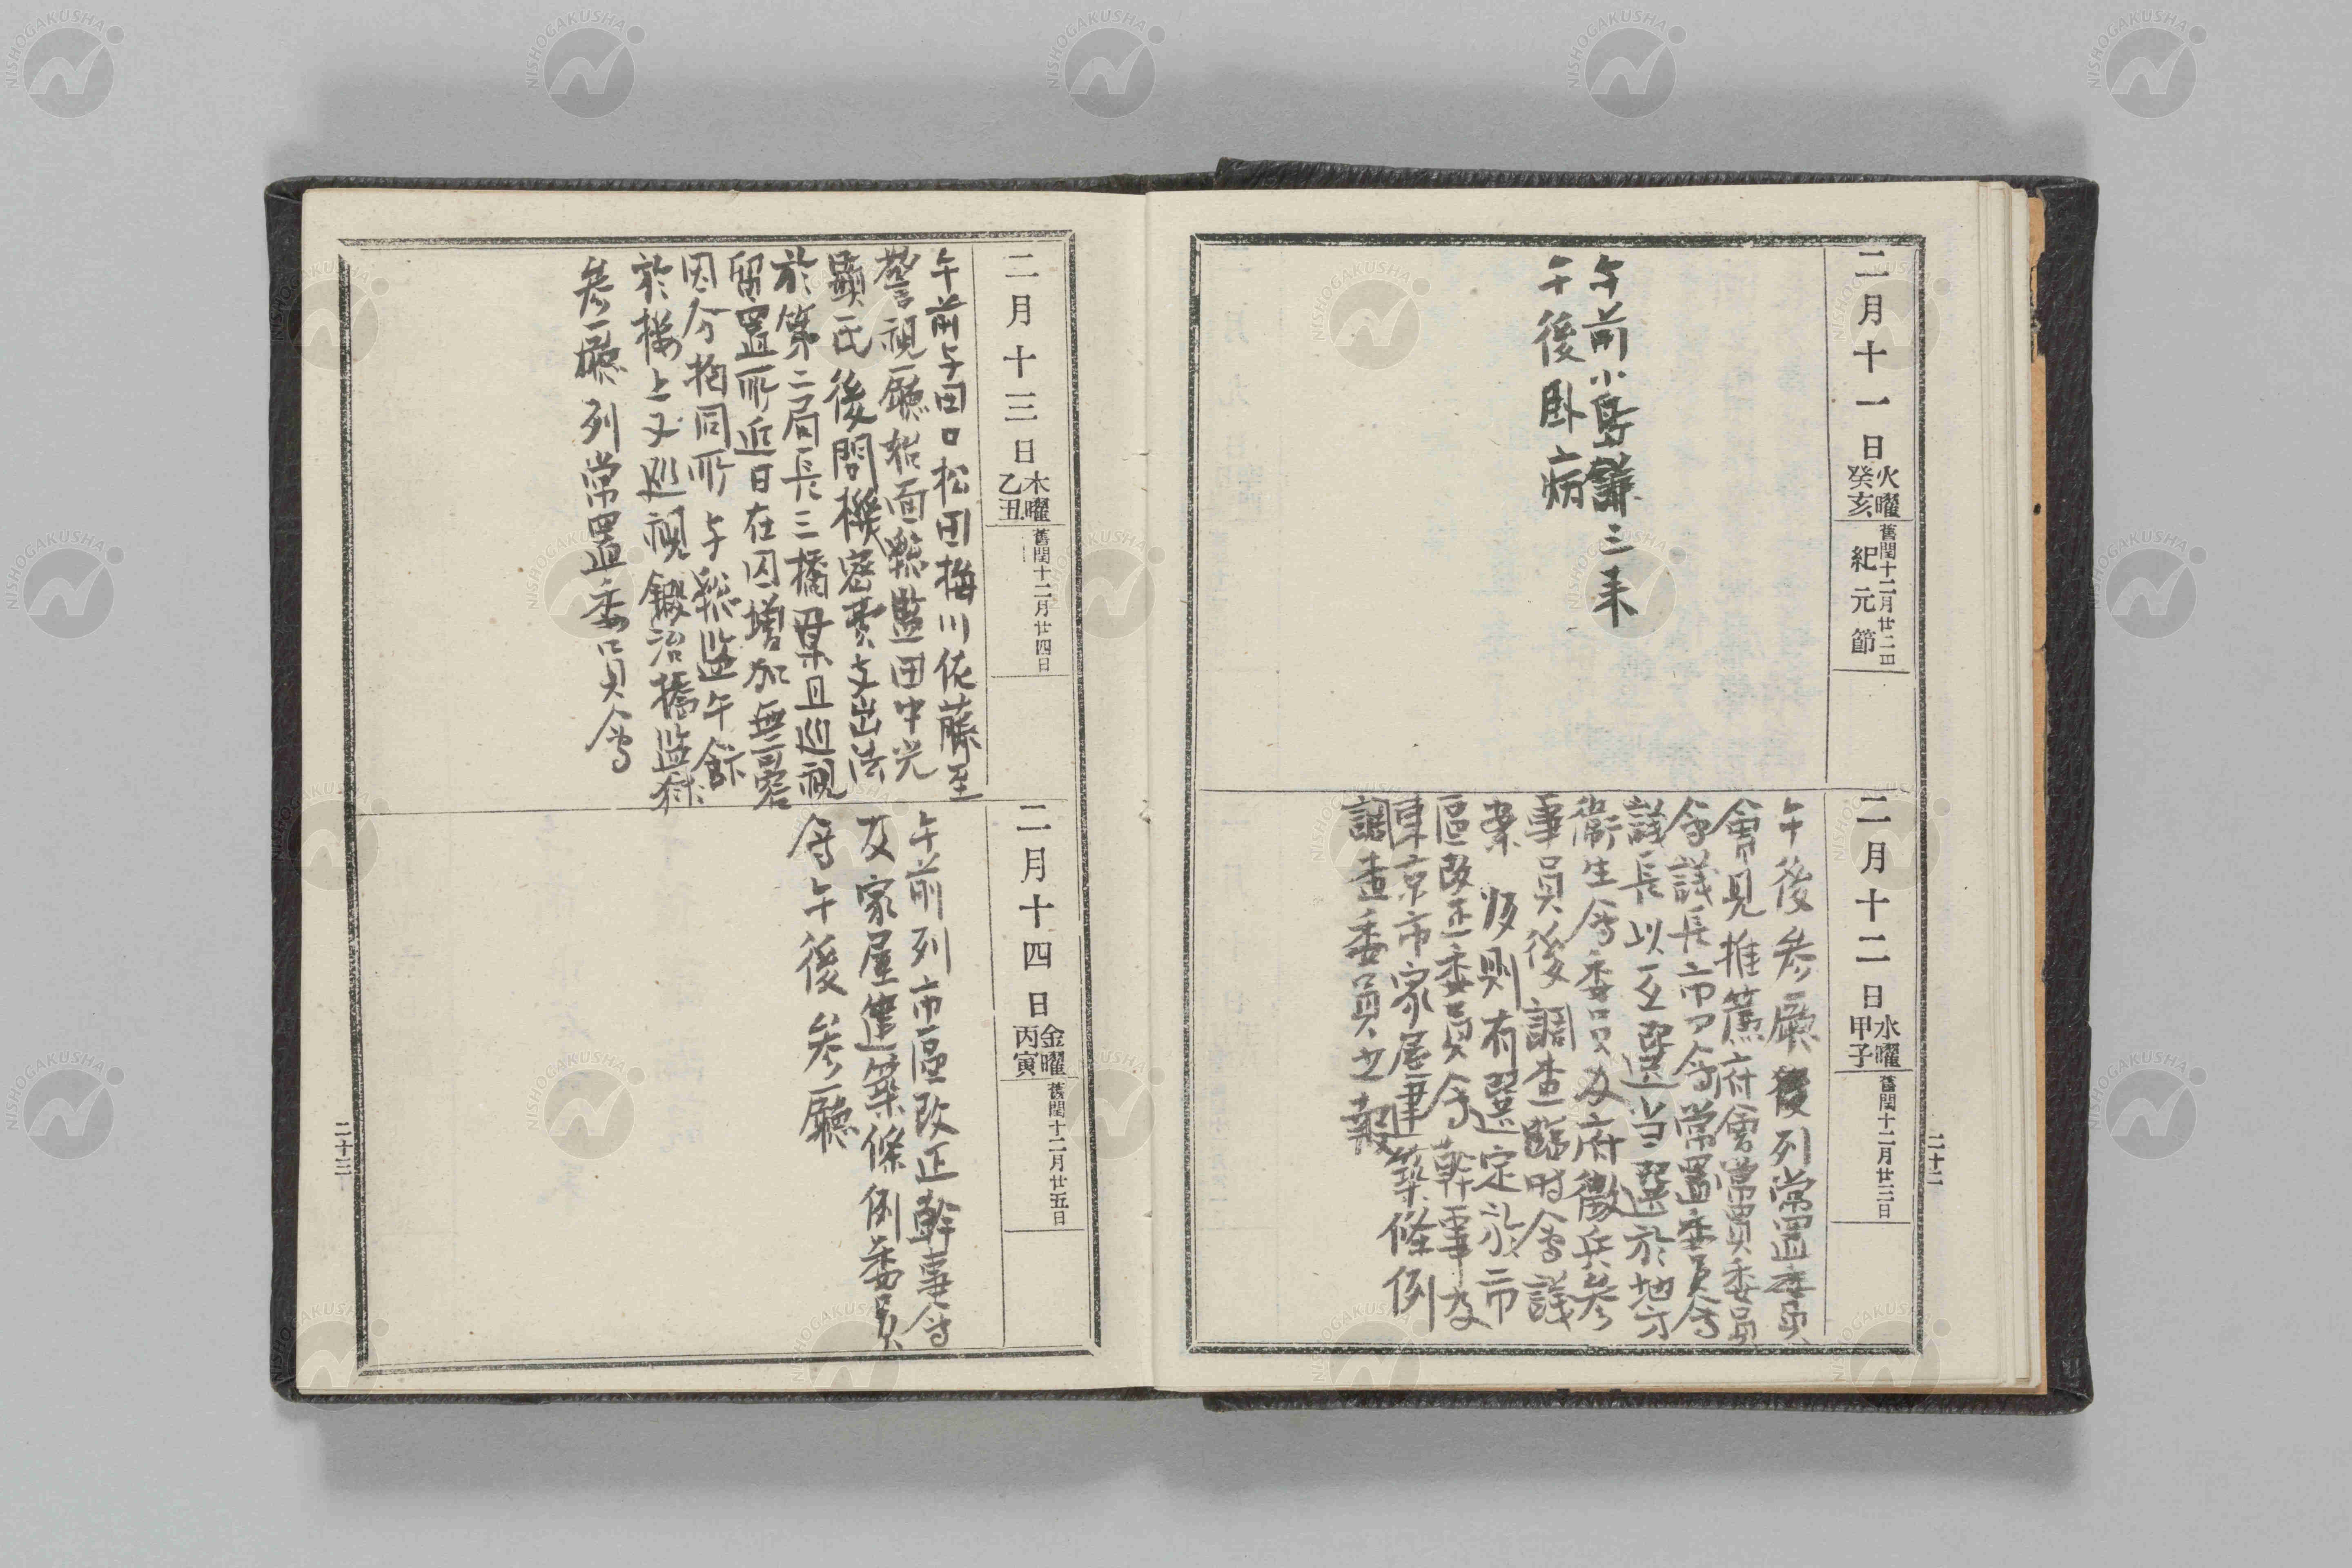 二月十一日
火曜
癸亥
舊閏十二月廿二日
紀元節
午前小島謙三来
午後臥病
二月十二日
水曜
甲子
舊閏十二月廿三日
午後参廳後列常置委員
會見推薦府會常置委員
会議長市口会常置委員会
議長以互選当選於地方
衛生会委員及府徴兵参
事員後調査臨時會議
案 則有選定於市
區改正委員会幹事及
東京市家屋建築條例
調査委員之報
二十二
二月十三日
木曜
乙丑
舊閏十二月廿四日
午前与田口松田梅川佐藤至
警視廳始面総監田中光
顕氏後問機密費支出法
於第二局長三橋某且巡視
留置所近日在囚増加無
因分拘同所与総監午餘
於楼上又巡視鍛冶橋監獄
参廳列常置委員会
二月十四日
金曜
丙寅
舊閏十二月廿五日
午前列市區改正幹事会
及家屋建築條例委員
会午後参廳
二十三
NISHOGAKUSHA